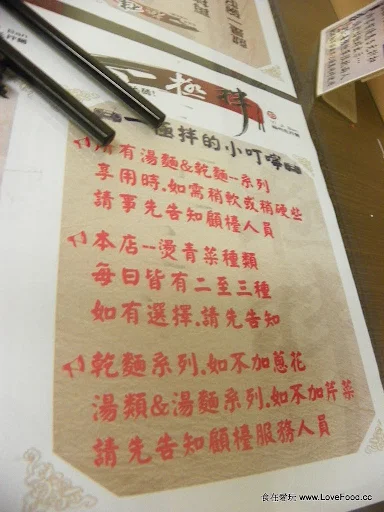 一極拌
一極拌的小叮嚀
所有湯麵&乾麵一系列
享用時.如需稍軟或稍硬些
請事先告知顧檯人員
本店--燙青菜種類
每日皆有二至三種
如有選擇.請先告知
乾麵系列.如不加蔥花
湯類&湯麵系列.如不加芹菜
請先告知顧檯服務人員
食在愛玩 www.LoveFood.cc